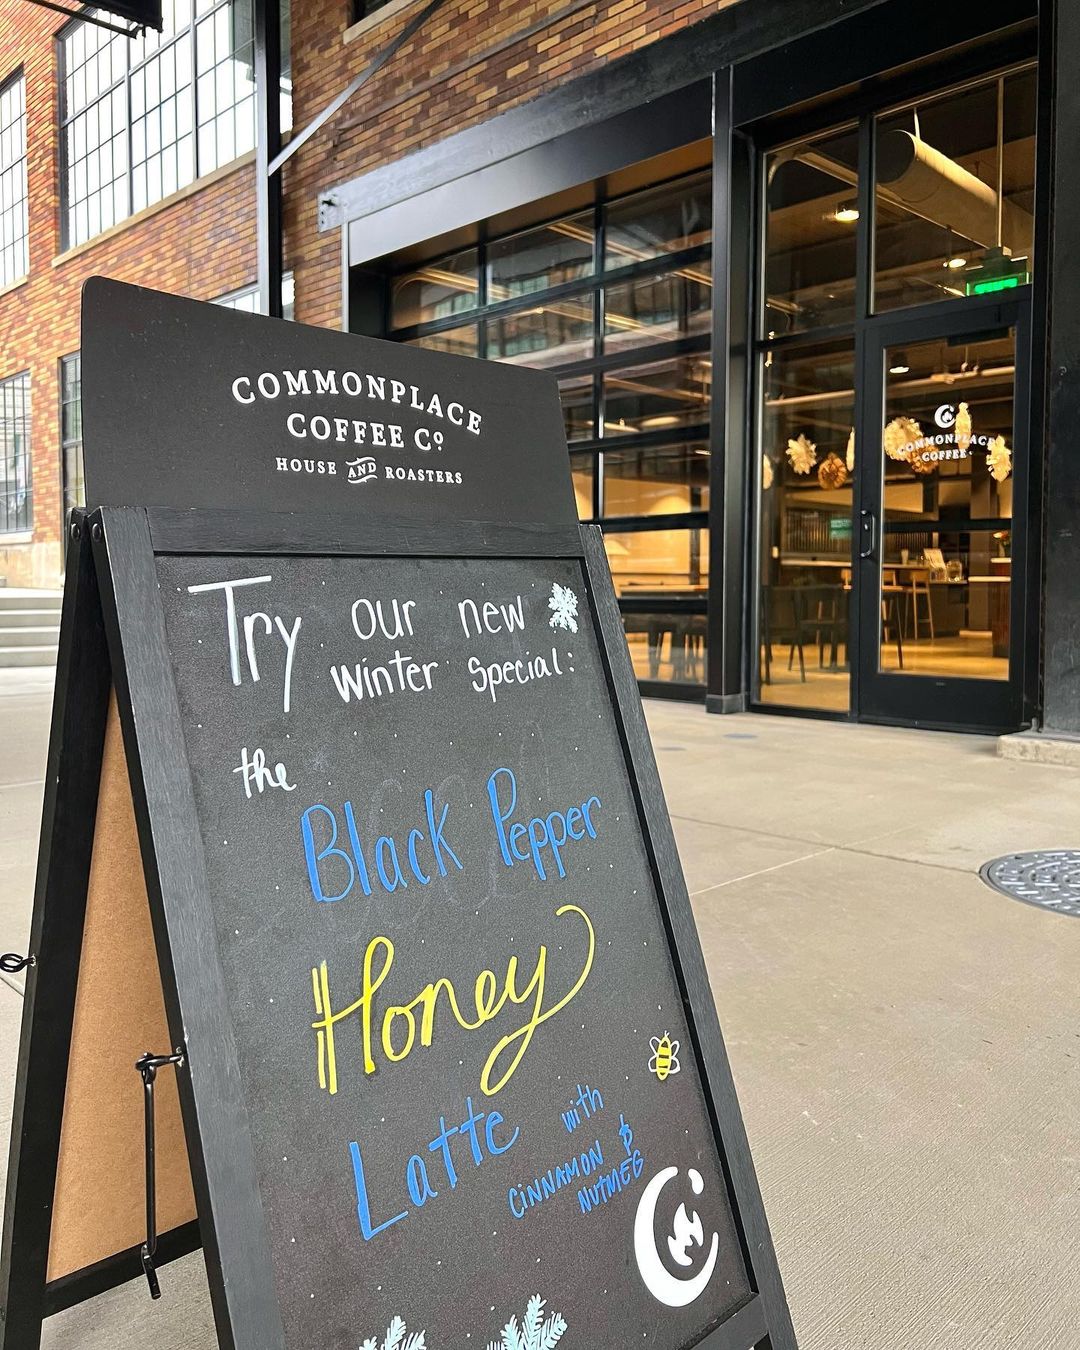 COMMONPLACE
COFFEE Co
HOUSE AND ROASTERS
Try our new
winter special:
the
Black Pepper
Honey
Latte with
CINNAMON &
NUTMEG
COMMONPLACE
COFFEE